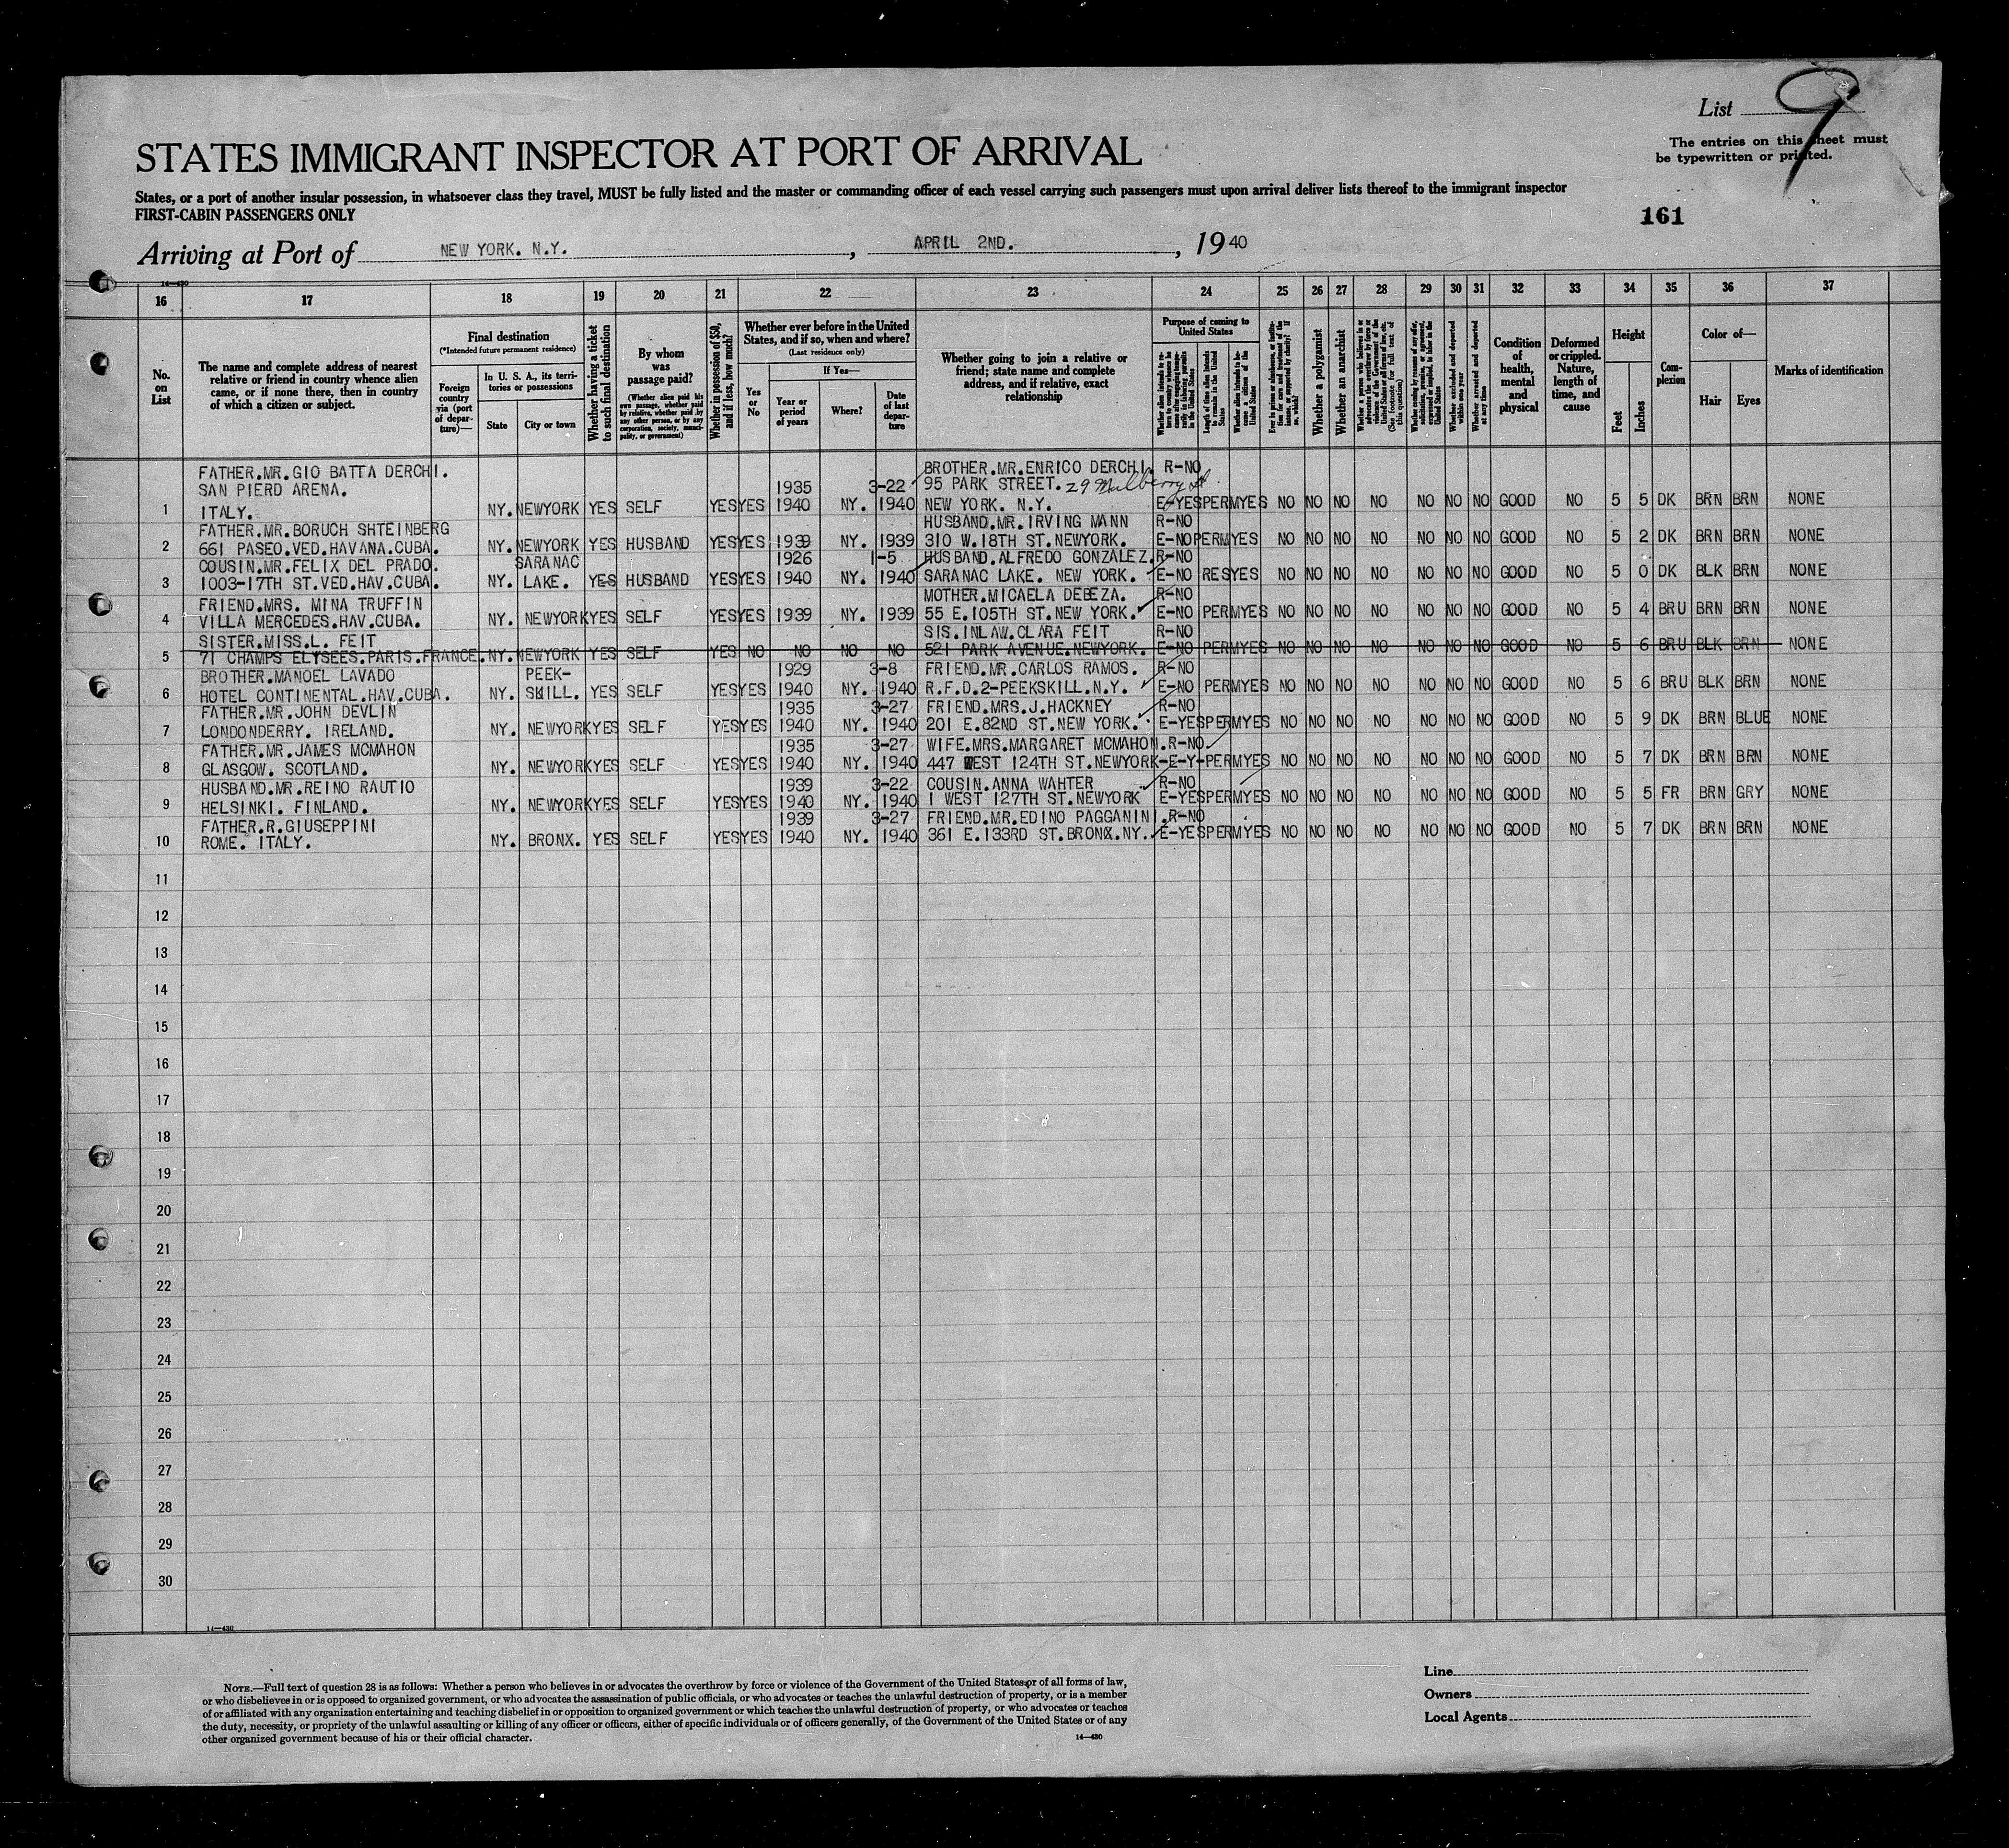 List 9
The entries on this sheet must
be typewritten or printed.
STATES IMMIGRANT INSPECTOR AT PORT OF ARRIVAL
States, or a port of another insular possession, in whatsoever class they travel, MUST be fully listed and the master or commanding officer of each vessel carrying such passengers must upon arrival deliver lists thereof to the immigrant inspector
FIRST-CABIN PASSENGERS ONLY
161
Arriving at Port of NEW YORK. N.Y. , APRIL 2ND. , 19 40
14—430
16 17 18 19 20 21 22 23 24 25 26 27 28 29 30 31 32 33 34 35 36 37
No. on List
The name and complete address of nearest relative or friend in country whence alien came, or if none there, then in country of which a citizen or subject.
Final destination
(*Intended future permanent residence)
Foreign country via (port of departure)—
In U. S. A., its territories or possessions
State
City or town
Whether having a ticket to such final destination
By whom was passage paid?
(Whether alien paid his own passage, whether paid by relative, whether paid by any other person, or by any corporation, society, municipality, or government)
Whether in possession of $50, and if less, how much?
Whether ever before in the United States, and if so, when and where?
(Last residence only)
Yes or No
If Yes—
Year or period of years
Where?
Date of last departure
Whether going to join a relative or friend; state name and complete address, and if relative, exact relationship
Purpose of coming to United States
Length of time alien intends to remain in the United States
Whether alien intends to become a citizen of the United States
Whether a polygamist
Whether an anarchist
Whether excluded and deported within one year
Whether arrested and deported at any time
Condition of health, mental and physical
Deformed or crippled. Nature, length of time, and cause
Height
Feet
Inches
Complexion
Color of—
Hair
Eyes
Marks of identification
FATHER.MR.GIO BATTA DERCHI. BROTHER.MR.ENRICO DERCHI. R-NO
SAN PIERD ARENA. 1935 3-22 95 PARK STREET. 29 Mulberry St.
1 ITALY. NY. NEWYORK YES SELF YES YES 1940 NY. 1940 NEW YORK. N.Y. E-YES PERM YES NO NO NO NO NO NO NO GOOD NO 5 5 DK BRN BRN NONE
FATHER.MR.BORUCH SHTEINBERG HUSBAND.MR.IRVING MANN R-NO
2 661 PASEO.VED.HAVANA.CUBA. NY. NEWYORK YES HUSBAND YES YES 1939 NY. 1939 310 W.18TH ST.NEWYORK. E-NO PERM YES NO NO NO NO NO NO NO GOOD NO 5 2 DK BRN BRN NONE
COUSIN.MR.FELIX DEL PRADO. SARANAC 1926 1-5 HUSBAND.ALFREDO GONZALEZ. R-NO
3 1003-17TH ST.VED.HAV.CUBA. NY. LAKE. YES HUSBAND YES YES 1940 NY. 1940 SARANAC LAKE. NEW YORK. E-NO RES YES NO NO NO NO NO NO NO GOOD NO 5 0 DK BLK BRN NONE
FRIEND.MRS. MINA TRUFFIN MOTHER.MICAELA DEBEZA. R-NO
4 VILLA MERCEDES.HAV.CUBA. NY. NEWYORK YES SELF YES YES 1939 NY. 1939 55 E.105TH ST.NEW YORK. E-NO PERM YES NO NO NO NO NO NO NO GOOD NO 5 4 BRU BRN BRN NONE
SISTER.MISS.L. FEIT SIS.INLAW.CLARA FEIT R-NO
5 71 CHAMPS ELYSEES.PARIS.FRANCE. NY. NEWYORK YES SELF YES NO NO NO NO 521 PARK AVENUE.NEWYORK. E-NO PERM YES NO NO NO NO NO NO NO GOOD NO 5 6 BRU BLK BRN NONE
BROTHER.MANOEL LAVADO PEEK- 1929 3-8 FRIEND.MR.CARLOS RAMOS. R-NO
6 HOTEL CONTINENTAL.HAV.CUBA. NY. SKILL. YES SELF YES YES 1940 NY. 1940 R.F.D.2-PEEKSKILL.N.Y. E-NO PERM YES NO NO NO NO NO NO NO GOOD NO 5 6 BRU BLK BRN NONE
FATHER.MR.JOHN DEVLIN 1935 3-27 FRIEND.MRS.J.HACKNEY R-NO
7 LONDONDERRY. IRELAND. NY. NEWYORK YES SELF YES YES 1940 NY. 1940 201 E.82ND ST.NEW YORK. E-YES PERM YES NO NO NO NO NO NO NO GOOD NO 5 9 DK BRN BLUE NONE
FATHER.MR.JAMES MCMAHON 1935 3-27 WIFE.MRS.MARGARET MCMAHON. R-NO
8 GLASGOW. SCOTLAND. NY. NEWYORK YES SELF YES YES 1940 NY. 1940 447 WEST 124TH ST.NEWYORK-E-Y-PERM YES NO NO NO NO NO NO NO GOOD NO 5 7 DK BRN BRN NONE
HUSBAND.MR.REINO RAUTIO 1939 3-22 COUSIN.ANNA WAHTER R-NO
9 HELSINKI. FINLAND. NY. NEWYORK YES SELF YES YES 1940 NY. 1940 1 WEST 127TH ST.NEWYORK E-YES PERM YES NO NO NO NO NO NO NO GOOD NO 5 5 FR BRN GRY NONE
FATHER.R.GIUSEPPINI 1939 3-27 FRIEND.MR.EDINO PAGGANINI. R-NO
10 ROME. ITALY. NY. BRONX. YES SELF YES YES 1940 NY. 1940 361 E.133RD ST.BRONX.NY. E-YES PERM YES NO NO NO NO NO NO NO GOOD NO 5 7 DK BRN BRN NONE
11
12
13
14
15
16
17
18
19
20
21
22
23
24
25
26
27
28
29
30
14—430
NOTE.—Full text of question 28 is as follows: Whether a person who believes in or advocates the overthrow by force or violence of the Government of the United States or of all forms of law,
or who disbelieves in or is opposed to organized government, or who advocates the assassination of public officials, or who advocates or teaches the unlawful destruction of property, or is a member
of or affiliated with any organization entertaining and teaching disbelief in or opposition to organized government or which teaches the unlawful destruction of property, or who advocates or teaches
the duty, necessity, or propriety of the unlawful assaulting or killing of any officer or officers, either of specific individuals or of officers generally, of the Government of the United States or of any
other organized government because of his or their official character.
14—430
Line
Owners
Local Agents